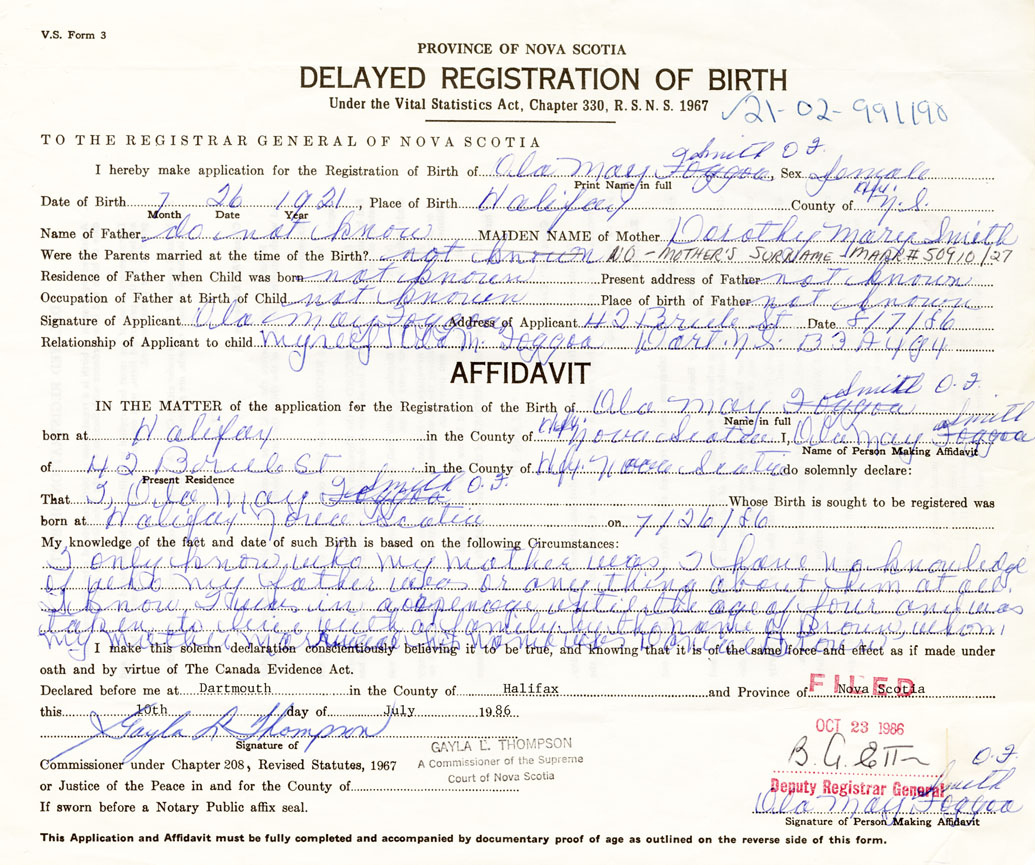 V.S. Form 3
PROVINCE OF NOVA SCOTIA
DELAYED REGISTRATION OF BIRTH
Under the Vital Statistics Act, Chapter 330, R. S. N. S. 1967
21-02-991190
TO THE REGISTRAR GENERAL OF NOVA SCOTIA
Smith O F
I hereby make application for the Registration of Birth of Ola May Foggoa, Sex female
Print Name in full
Date of Birth 7 26 1921, Place of Birth Halifax County of Hfx. N.S.
Month Date Year
Name of Father do not know MAIDEN NAME of Mother Dorothy Mary Smith
Were the Parents married at the time of the Birth? not known NO - MOTHER'S SURNAME MARR # 50910/27
Residence of Father when Child was born not known Present address of Father not known
Occupation of Father at Birth of Child not known Place of birth of Father not known
Signature of Applicant Ola May Foggoa Address of Applicant 42 St Date 8/17/86
Relationship of Applicant to child Myself Ola M. Foggoa Dart. N.S.
AFFIDAVIT
Smith O. F.
IN THE MATTER of the application for the Registration of the Birth of Ola May Foggoa
Name in full
Smith
born at Halifax in the County of Hfx. Nova Scotia I, Ola May Foggoa
Name of Person Making Affidavit
of 42 St in the County of Hfx. Nova Scotia do solemnly declare:
Present Residence
Smith O. F.
That I, Ola May Foggoa Whose Birth is sought to be registered was
born at Halifax Nova Scotia on 7/26/86
My knowledge of the fact and date of such Birth is based on the following Circumstances:
I only know who my mother was, I have no knowledge
of who my father was or anything about him at all.
I know I was in a orpenage until the age of four any was
taken to live with a family by the name of Brown, whom
my mother
I make this solemn declaration conscientiously believing it to be true, and knowing that it is of the same force and effect as if made under
oath and by virtue of The Canada Evidence Act.
Declared before me at Dartmouth in the County of Halifax and Province of Nova Scotia
FILED
this 10th day of July 1986
OCT 23 1986
Gayla L Thompson
Signature of
GAYLA L. THOMPSON
A Commissioner of the Supreme
Court of Nova Scotia
Commissioner under Chapter 208, Revised Statutes, 1967
O. F.
Deputy Registrar General
Smith
or Justice of the Peace in and for the County of
Ola May Foggoa
If sworn before a Notary Public affix seal.
Signature of Person Making Affidavit
This Application and Affidavit must be fully completed and accompanied by documentary proof of age as outlined on the reverse side of this form.